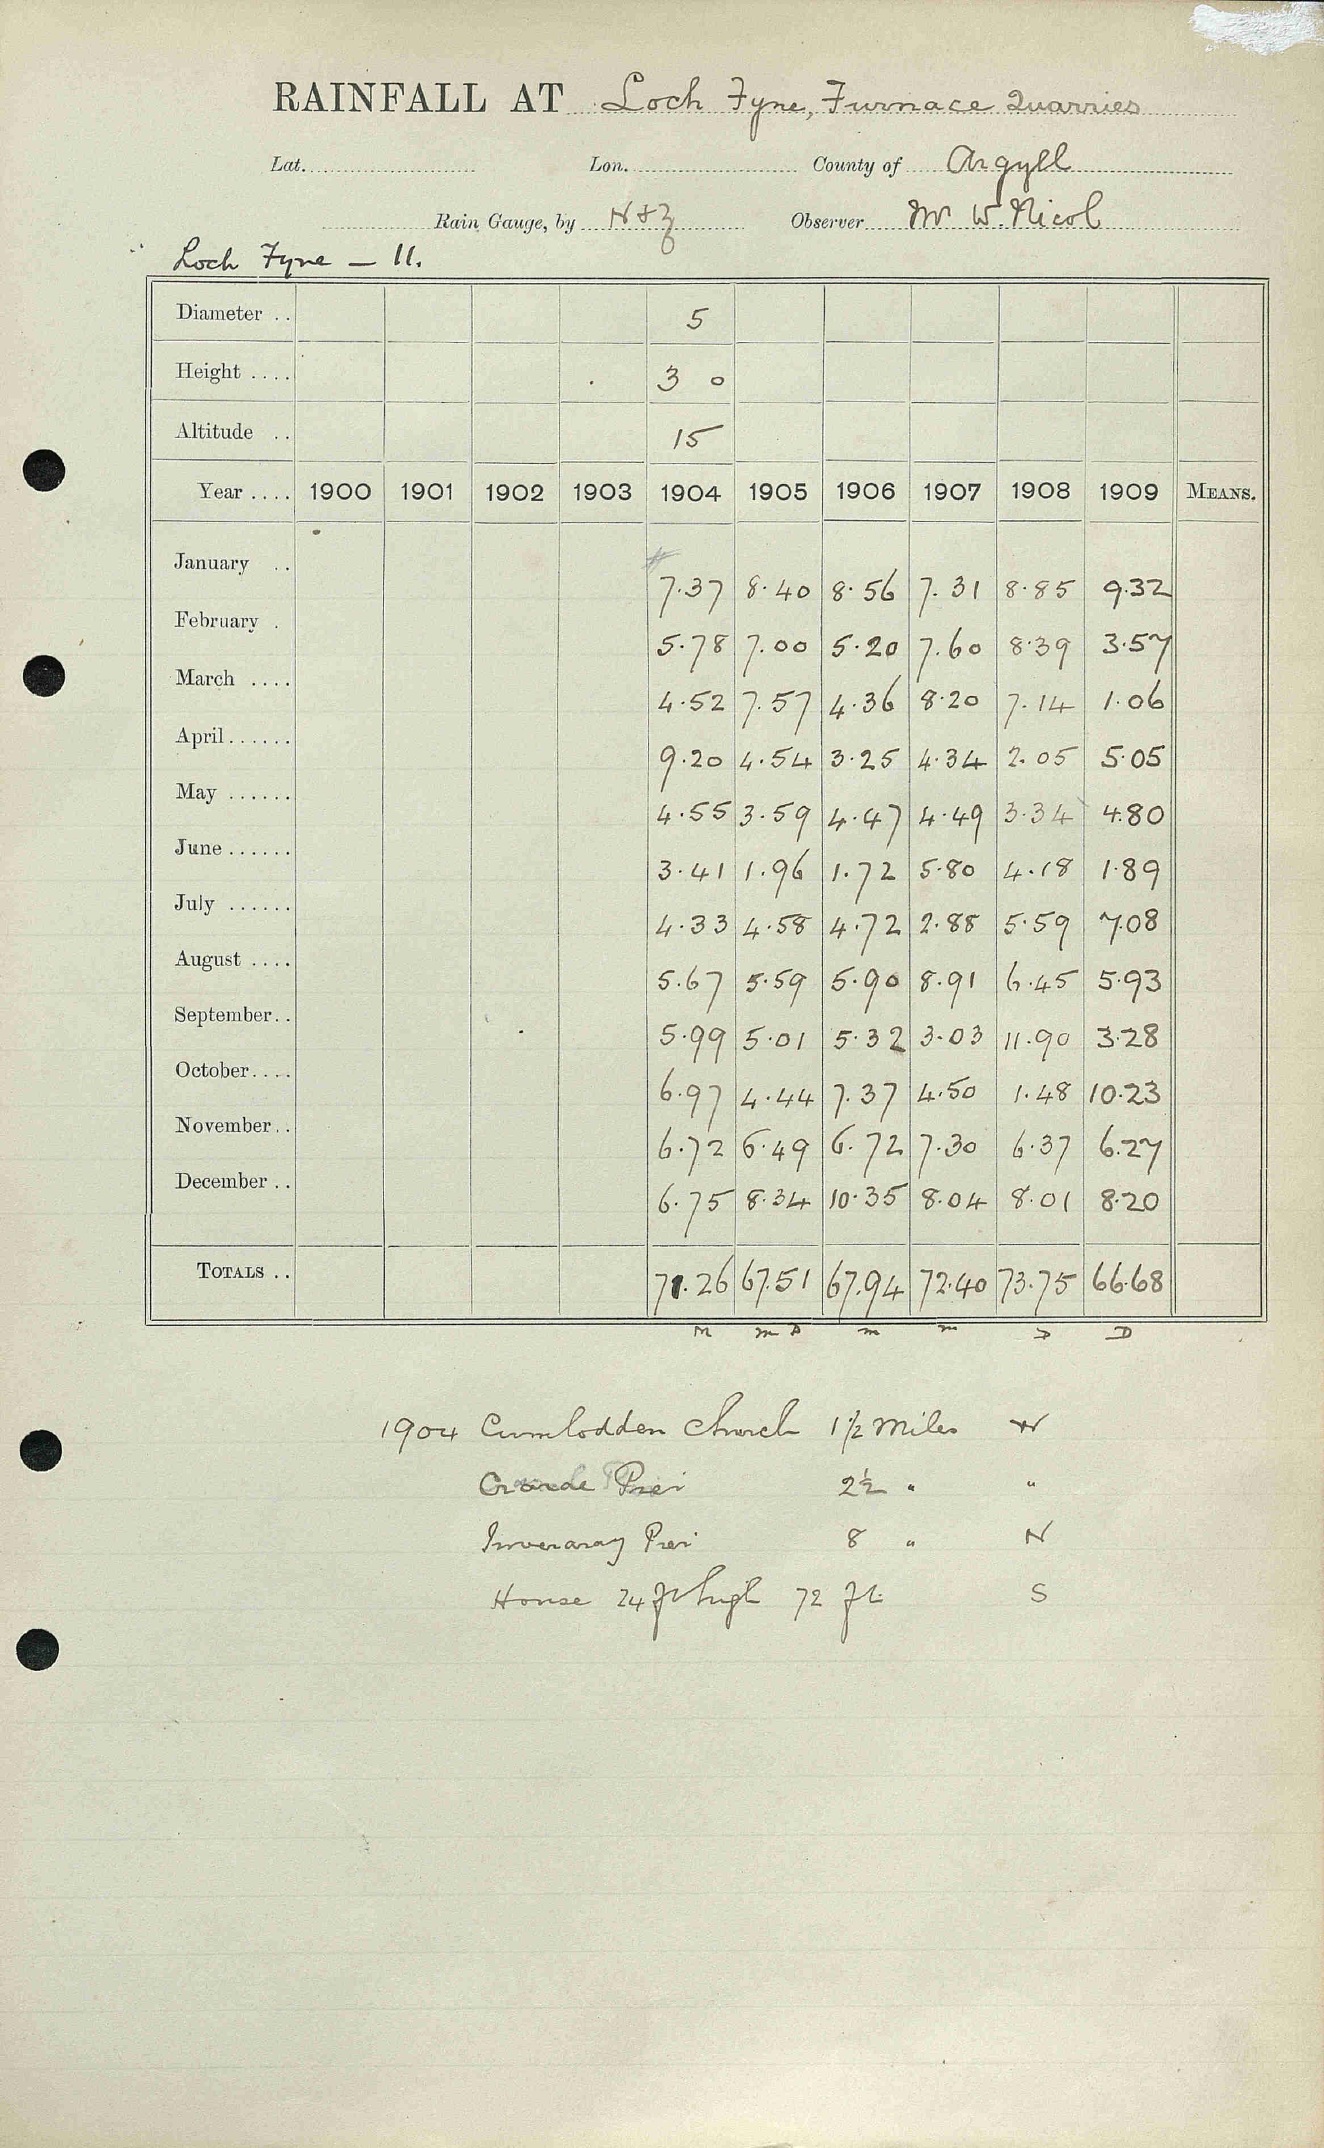 RAINFALL AT Loch Fyne, Furnace Quarries
Lat. Lon. County of Argyll
Rain Gauge, by N & Z Observer Mr W. Nicol
Loch Fyne - 11.
Diameter .. 5
Height .... 3 0
Altitude .. 15
Year .... 1900 1901 1902 1903 1904 1905 1906 1907 1908 1909 MEANS.
January .. 7.37 8.40 8.56 7.31 8.85 9.32
February . 5.78 7.00 5.20 7.60 8.39 3.57
March .... 4.52 7.57 4.36 8.20 7.14 1.06
April ...... 9.20 4.54 3.25 4.34 2.05 5.05
May ...... 4.55 3.59 4.47 4.49 3.34 4.80
June ...... 3.41 1.96 1.72 5.80 4.18 1.89
July ...... 4.33 4.58 4.72 2.88 5.59 7.08
August .... 5.67 5.59 5.90 8.91 6.45 5.93
September .. 5.99 5.01 5.32 3.03 11.90 3.28
October .... 6.97 4.44 7.37 4.50 1.48 10.23
November .. 6.72 6.49 6.72 7.30 6.37 6.27
December .. 6.75 8.34 10.35 8.04 8.01 8.20
TOTALS .. 71.26 67.51 67.94 72.40 73.75 66.68
M m D m m D D
1904 Cumlodden Church 1 1/2 Miles W
Pier 2 1/2 " "
Inveraray Pier 8 " N
House 24 ft high 72 ft. S